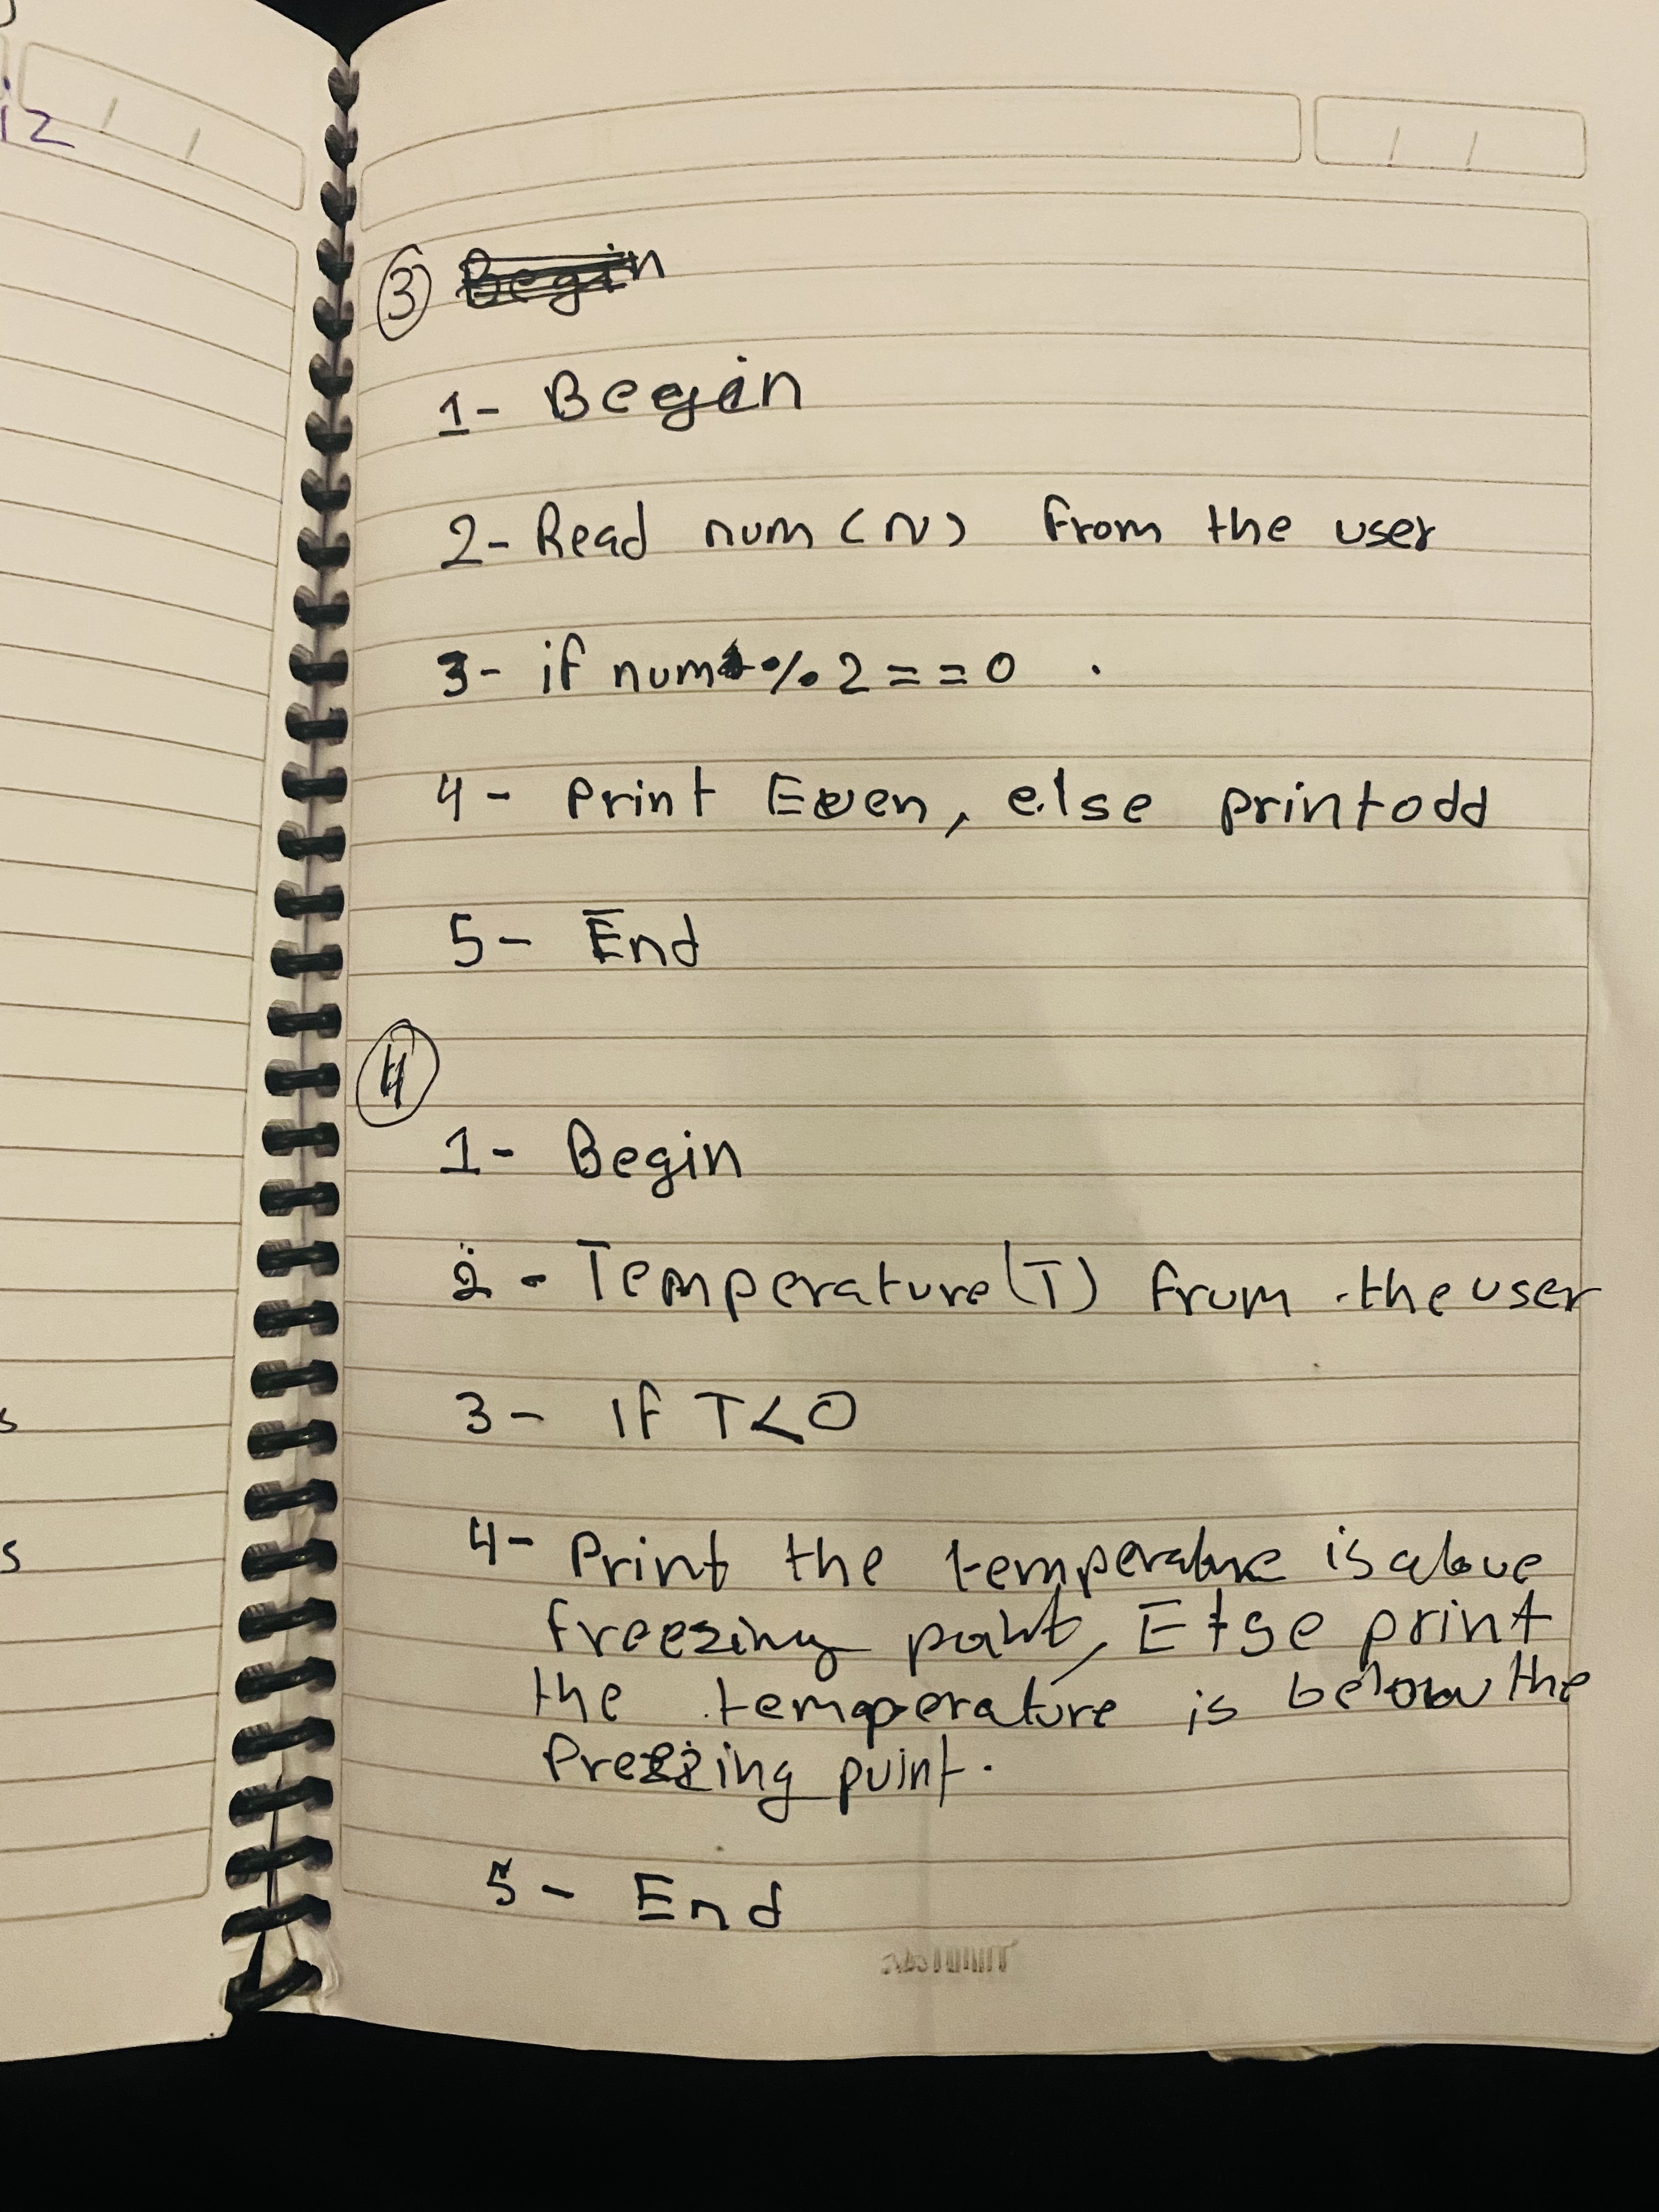 iz
③ Begin
1- Begin
2- Read num (N) from the user
3- if num % 2 = = 0 .
4- Print Even, else print odd
5- End
④
1- Begin
2 - Temperature (T) from the user
3- if T<0
4- Print the temperature is above
freezing point, Else print
the temperature is below the
Freezing point.
5- End
s
s